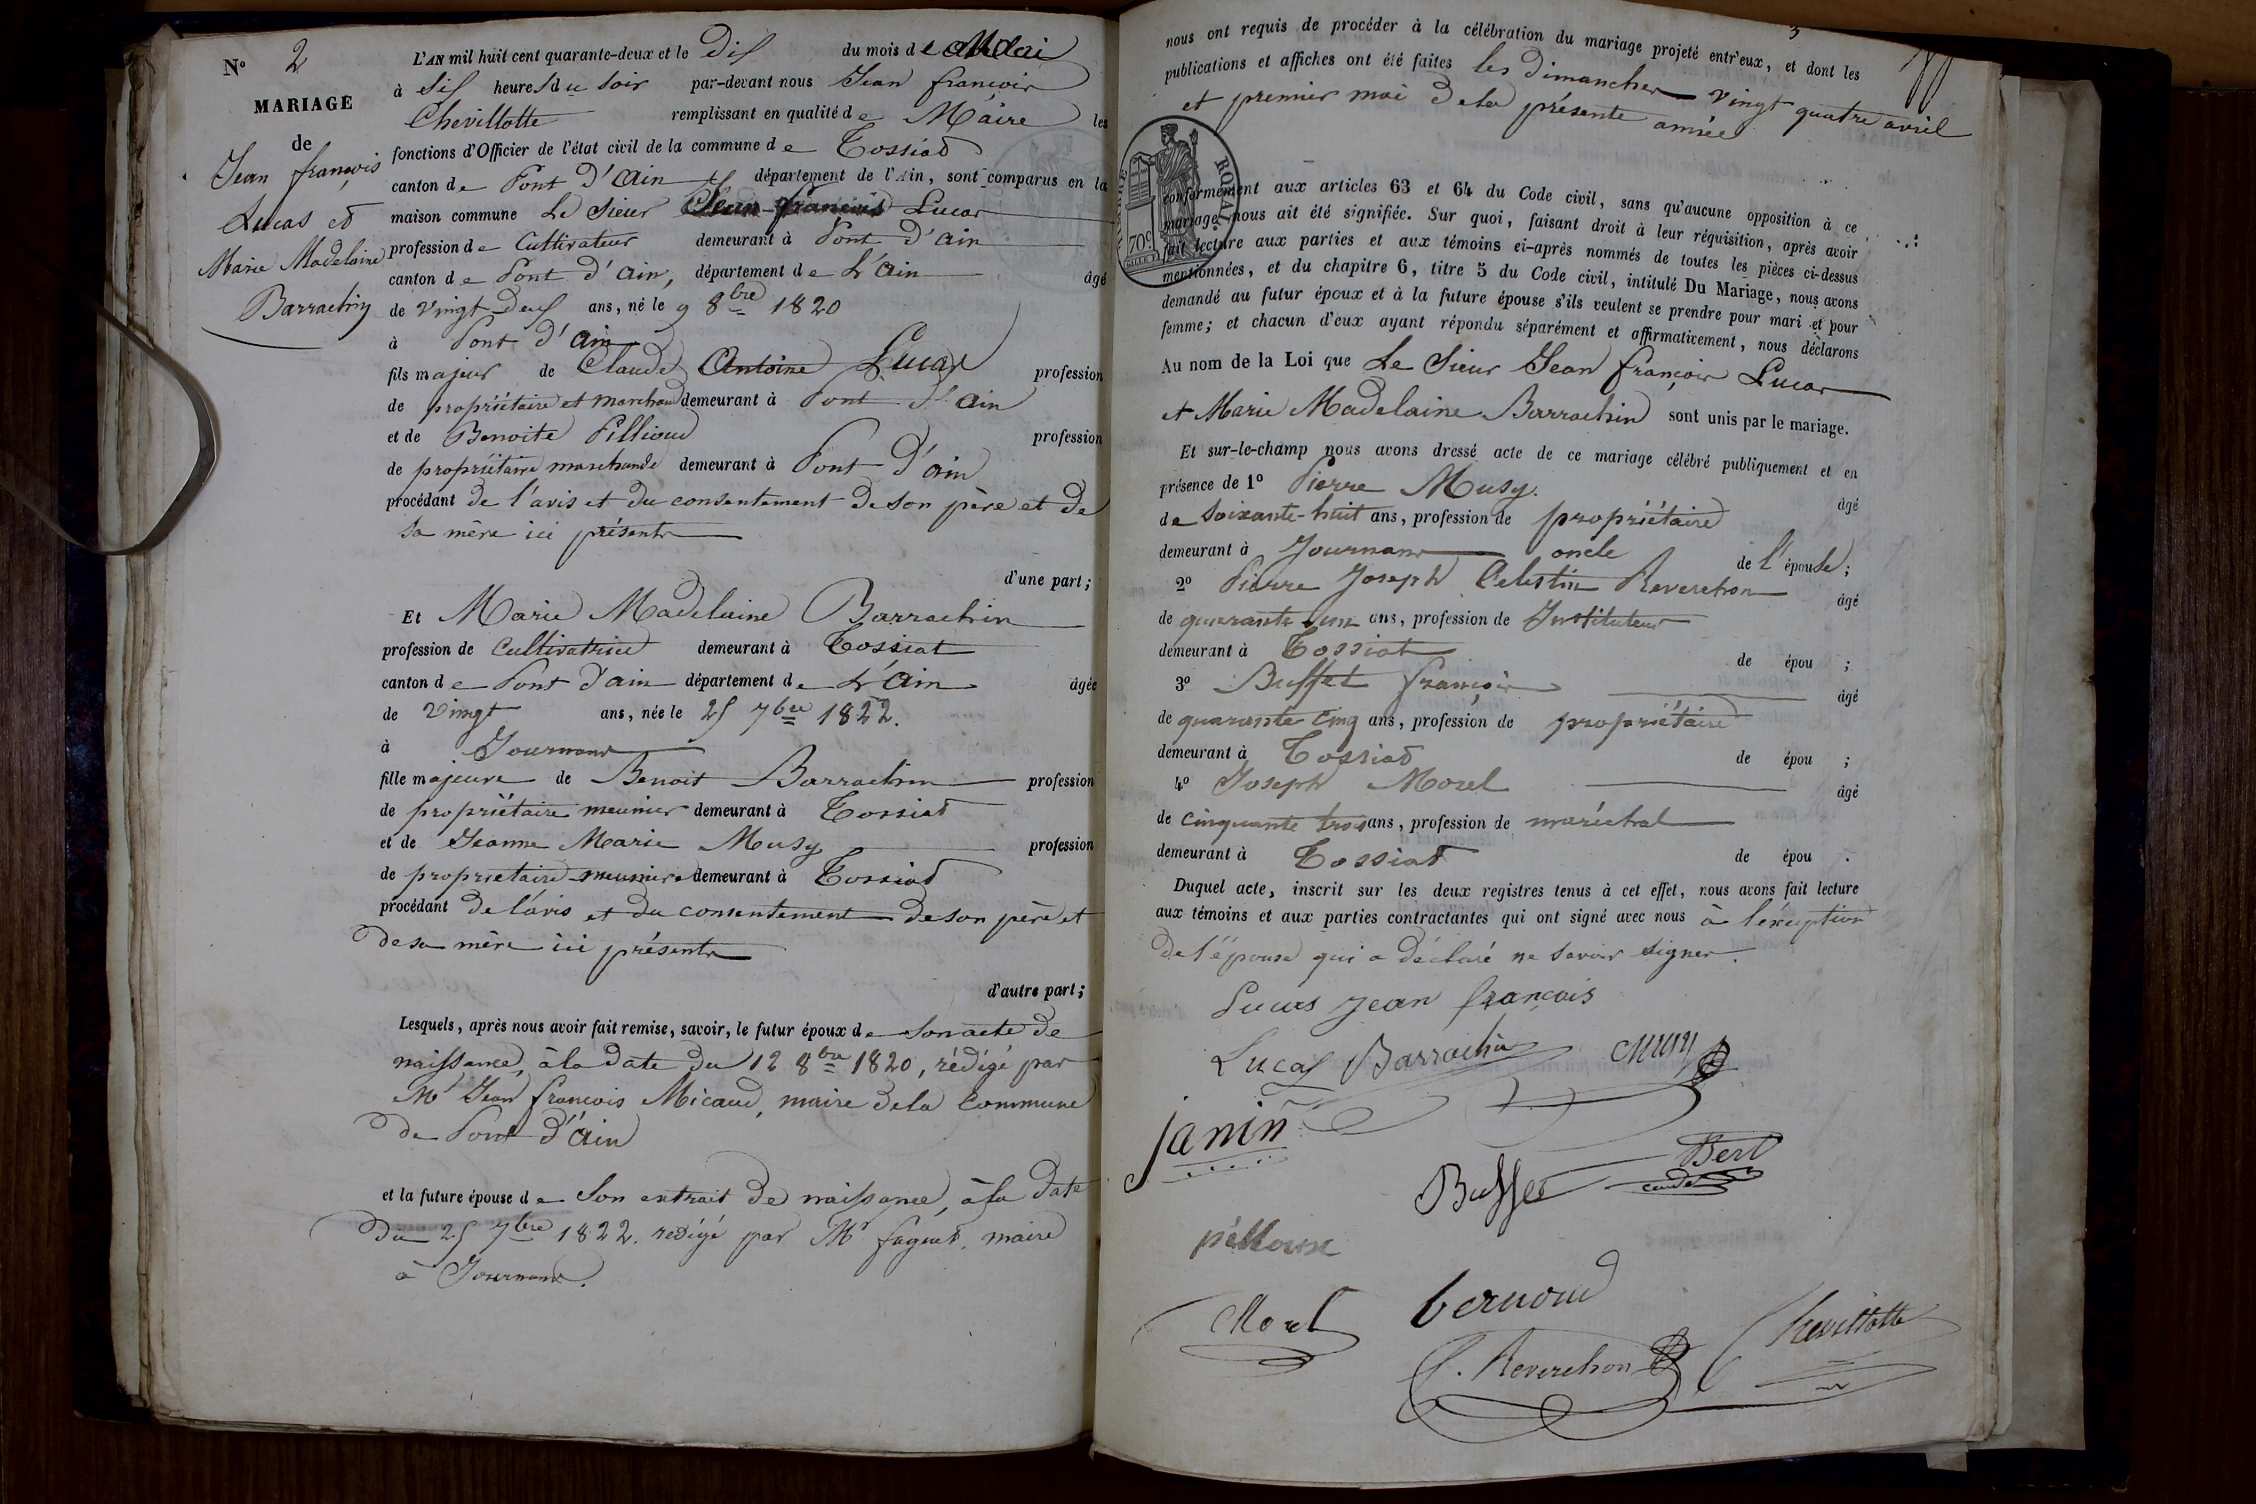 N° 2
MARIAGE
de
Jean françois
Lucas et
Marie Madelaine
Barrachin
L'AN mil huit cent quarante-deux et le Dix du mois de Mai
à Six heures du soir par-devant nous Jean françois
Chevillotte remplissant en qualité de Maire les
fonctions d'Officier de l'état civil de la commune de Tossiat
canton de Pont d'ain département de l'Ain, sont comparus en la
maison commune Le Sieur Jean françois Lucas
profession de Cultivateur demeurant à Pont d'ain
canton de Pont d'ain, département de L'ain âgé
de vingt deux ans, né le 9 8bre 1820
à Pont d'ain
fils majeur de Claude Antoine Lucas profession
de propriétaire et marchand demeurant à Pont d'ain
et de Benoite Pillioud profession
de propriétaire marchande demeurant à Pont d'ain
procédant de l'avis et du consentement de son père et de
sa mère ici présents
d'une part;
Et Marie Madelaine Barrachin
profession de Cultivatrice demeurant à Tossiat
canton de Pont d'ain département de L'ain âgée
de vingt ans, née le 25 7bre 1822.
à Journans
fille majeure de Benoit Barrachin profession
de propriétaire meunier demeurant à Tossiat
et de Jeanne Marie Musy profession
de propriétaire meunière demeurant à Tossiat
procédant de l'avis et du consentement de son père et
de sa mère ici présents
d'autre part;
Lesquels, après nous avoir fait remise, savoir, le futur époux de Son acte de
naissance, à la date du 12 8bre 1820, rédigé par
Mr Jean françois Micaud, maire de la Commune
de Pont d'Ain
et la future épouse de Son extrait de naissance, à la date
du 25 7bre 1822. redigé par Mr faguet, maire
à Journans.
nous ont requis de procéder à la célébration du mariage projeté entr'eux, et dont les
publications et affiches ont été faites les Dimanches vingt quatre avril
et premier mai de la présente année
conformément aux articles 63 et 64 du Code civil, sans qu'aucune opposition à ce
mariage nous ait été signifiée. Sur quoi, faisant droit à leur réquisition, après avoir
fait lecture aux parties et aux témoins ci-après nommés de toutes les pièces ci-dessus
mentionnées, et du chapitre 6, titre 5 du Code civil, intitulé Du Mariage, nous avons
demandé au futur époux et à la future épouse s'ils veulent se prendre pour mari et pour
femme; et chacun d'eux ayant répondu séparément et affirmativement, nous déclarons
Au nom de la Loi que Le Sieur Jean françois Lucas
et Marie Madelaine Barrachin sont unis par le mariage.
Et sur-le-champ nous avons dressé acte de ce mariage célébré publiquement et en
présence de 1° Pierre Musy. âgé
de soixante-huit ans, profession de propriétaire
demeurant à Journans oncle de l'épouse;
2° Pierre Joseph Celestin Reverchon âgé
de quarante un ans, profession de Instituteur
demeurant à Tossiat de épou ;
3° Buffet françois âgé
de quarante cinq ans, profession de propriétaire
demeurant à Tossiat de épou ;
4° Joseph Morel âgé
de cinquante trois ans, profession de maréchal
demeurant à Tossiat de épou .
Duquel acte, inscrit sur les deux registres tenus à cet effet, nous avons fait lecture
aux témoins et aux parties contractantes qui ont signé avec nous à l'exception
de l'épouse qui a déclaré ne savoir signer.
Lucas jean françois
Lucas Barrachin Musy
janin
Bert
Buffet
cadet
pilloux
bernoud
Morel
C. Reverchon Chevillotte
ROYAL
70c